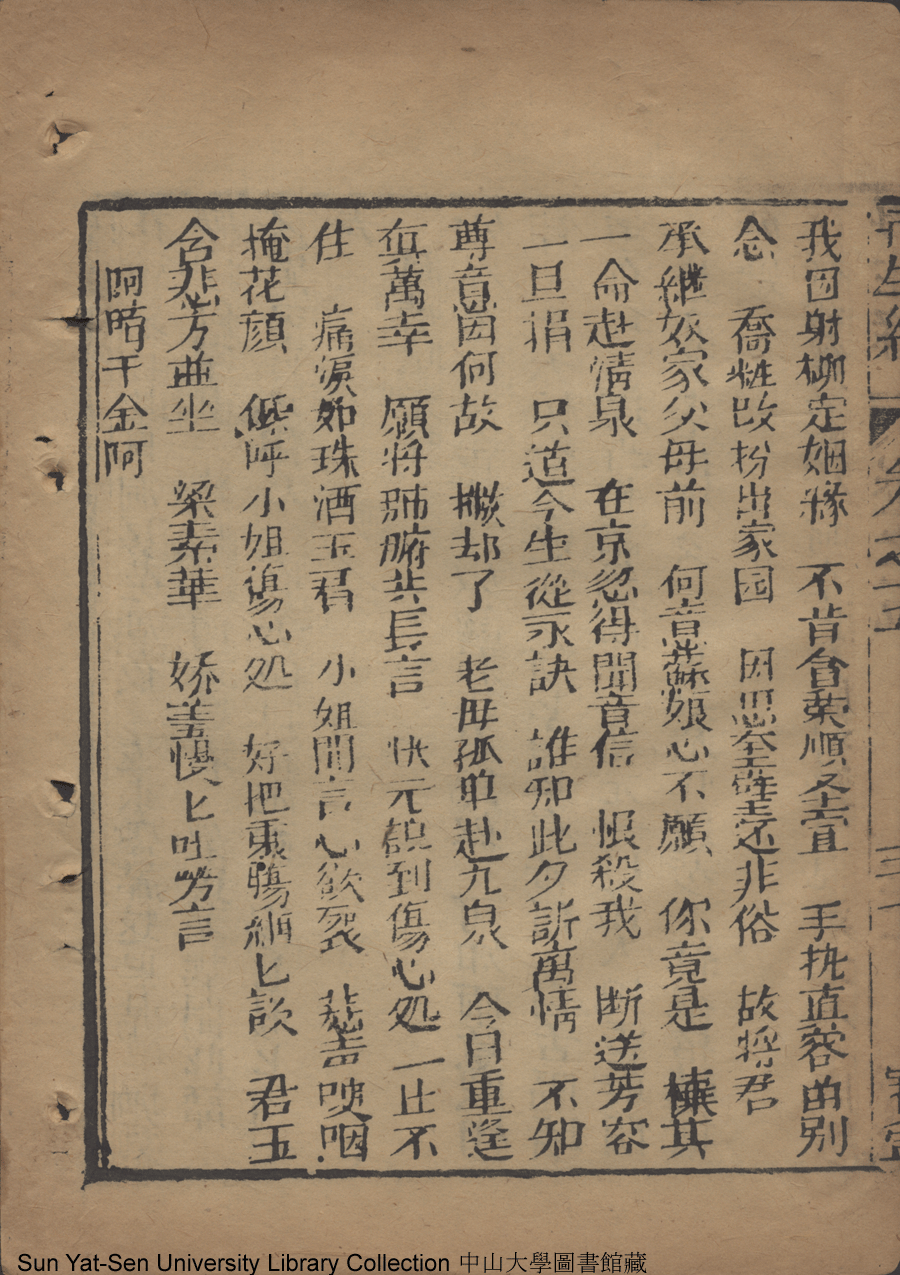 我因射柳定姻緣　不肯會榮順𦤶宜　手执直蓉曲别
念　喬粧改扮出家园　因思𦤶𦤶还非俗　故将君
承繼奴家父母前　何意蘇娘心不願　你竟是　横其
一命赴情泉　在京忽得聞音信　恨殺我　断送芳容
一旦捐　只道今生從永訣　誰知此夕訴离情　不知
尊意因何故　撇却了　老母孤单赴九泉　今日重逢
真萬幸　願将肺腑共長言　状元説到傷心处　一止不
住　痛淚如珠洒玉君　小姐聞言心欲裂　悲声哽咽
掩花顔　低呼小姐傷心处　好把衷腸細匕談　君玉
含悲方並坐　梁素華　娇羞慢匕吐芳言
阿唷千金阿
再生縁　卷之五
Sun Yat-Sen University Library Collection 中山大學圖書館藏